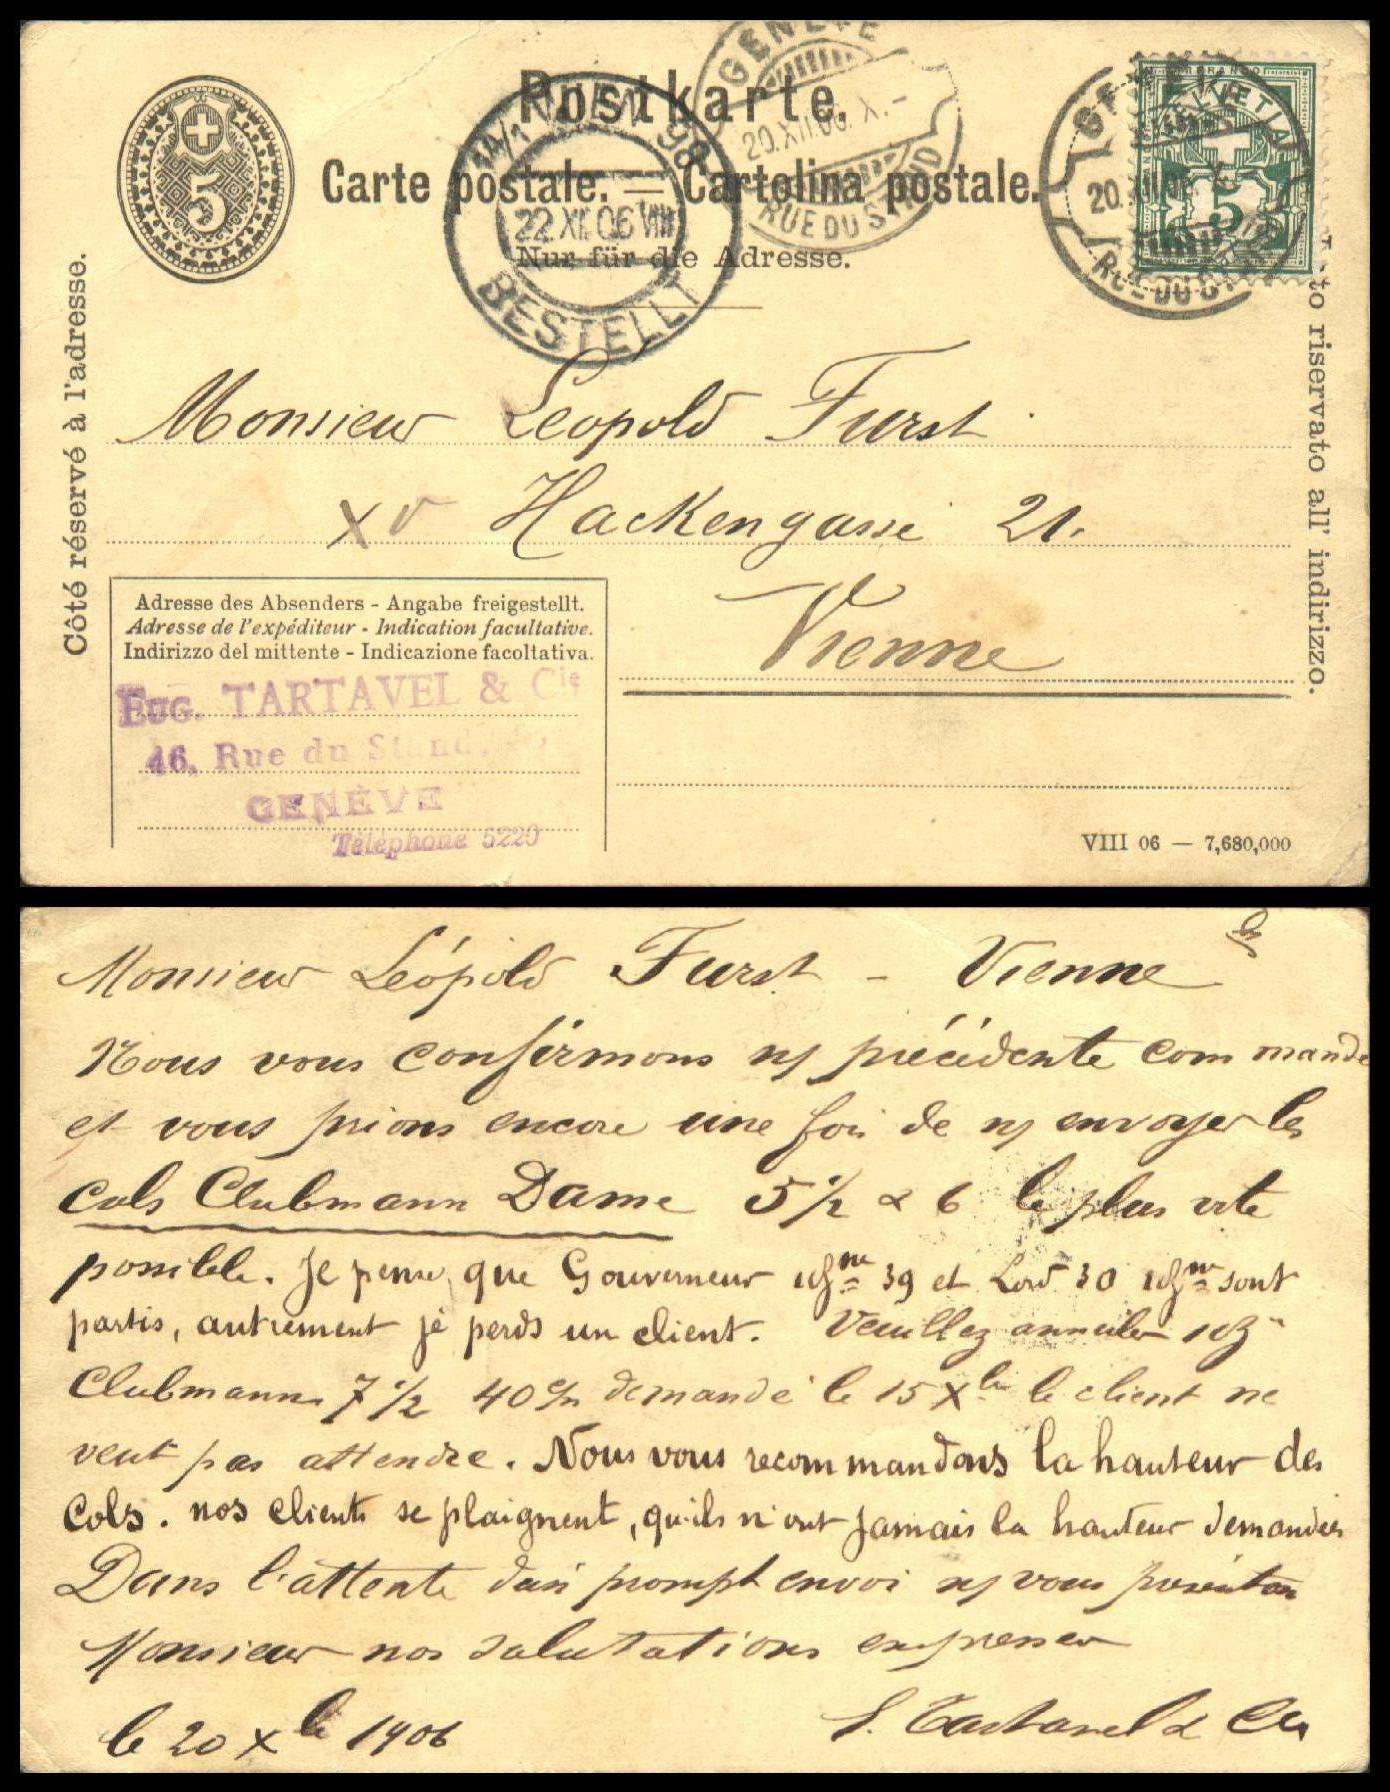 Postkarte.
Carte postale. — Cartolina postale.
Nur für die Adresse.
5
GENÈVE
20.XII.06. X.-
RUE DU STAND
WIEN
22.XII.06 VIII
BESTELLT
HELVETIA
FRANCO
5
Côté réservé à l'adresse.
to riservato all' indirizzo.
Monsieur Léopold Furst
XV Hackengasse 21.
Vienne
Adresse des Absenders - Angabe freigestellt.
Adresse de l'expéditeur - Indication facultative.
Indirizzo del mittente - Indicazione facoltativa.
EUG. TARTAVEL & Cie
46, Rue du Stand,
GENÈVE
Téléphone 5220
VIII 06 — 7,680,000
Monsieur Léopold Furst - Vienne
Nous vous confirmons ns précédente commande
et vous prions encore une fois de ns envoyer les
cols Clubmann Dame 5 1/2 & 6 le plus vite
possible. Je pense, que Gouverneur 39 et Lord 30 sont
partis, autrement je perds un client. Veuillez annuler
Clubmann 7 1/2 40 c/m demandé le 15 Xbre le client ne
veut pas attendre. Nous vous recommandons la hauteur des
Cols. nos clients se plaignent, qu'ils n'ont jamais la hauteur demandée
Dans l'attente d'un prompt envoi ns vous présentons
Monsieur nos salutations empressées
le 20 Xbre 1906
Tartavel & Cie